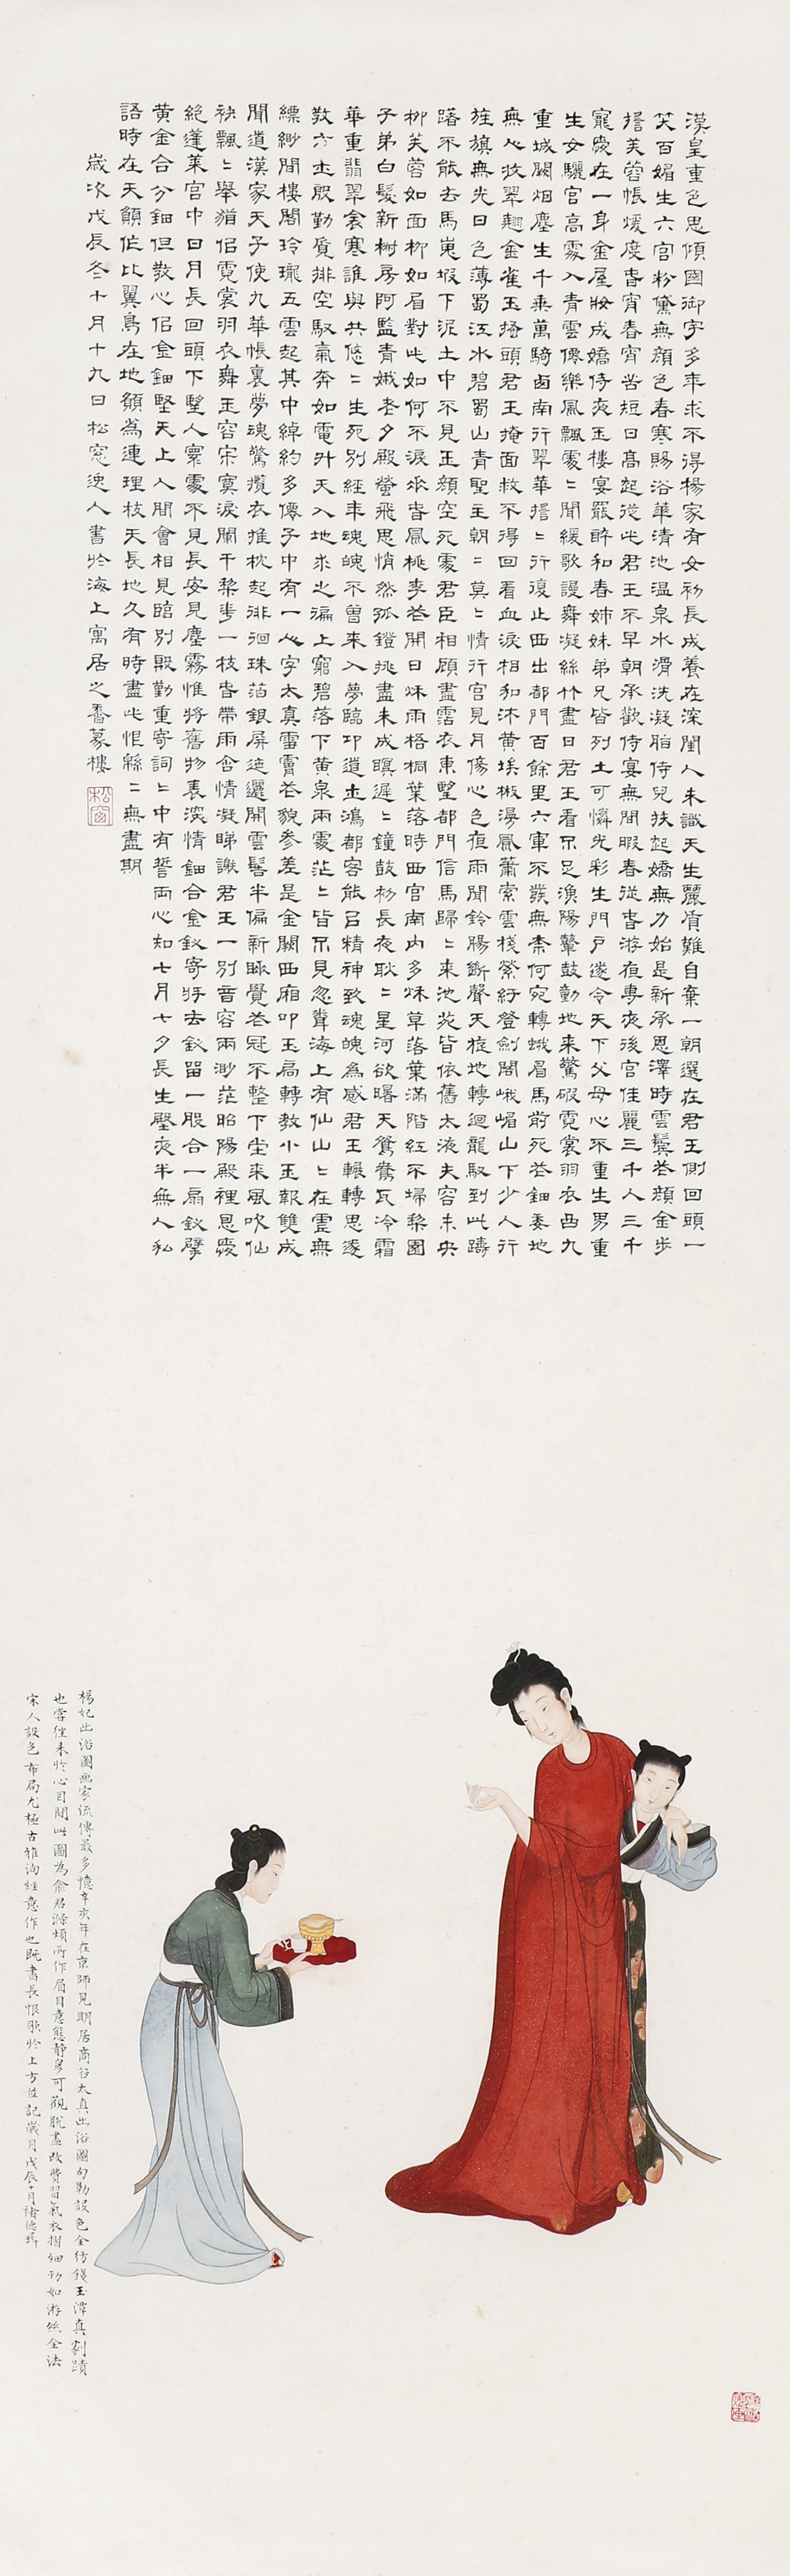 漢皇重色思傾國御宇多年求不得楊家有女初長成養在深閨人未識天生麗質難自棄一朝選在君王側回頭一
笑百媚生六宮粉黛無顏色春寒賜浴華清池溫泉水滑洗凝脂侍兒扶起嬌無力始是新承恩澤時雲鬢花顏金步
搖芙蓉帳煖度春宵春宵苦短日高起從此君王不早朝承歡侍宴無閒暇春從春游夜專夜後宮佳麗三千人三千
寵愛在一身金屋妝成嬌侍夜玉樓宴罷醉和春姊妹弟兄皆列土可憐光彩生門戶遂令天下父母心不重生男重
生女驪宮高處入青雲僊樂風飄處〻聞緩歌謾舞凝絲竹盡日君王看不足漁陽鼙鼓動地來驚破霓裳羽衣曲九
重城闕烟塵生千乘萬騎西南行翠華搖〻行復止西出都門百餘里六軍不發無柰何宛轉蛾眉馬前死花鈿委地
無人收翠翹金雀玉搔頭君王掩面救不得回看血淚相和沐黃埃散漫風蕭索雲棧縈紆登劍閣峨嵋山下少人行
旌旗無光日色薄蜀江水碧蜀山青聖主朝〻莫〻情行宮見月傷心色夜雨聞鈴腸斷聲天旋地轉迴龍馭到此躊
躇不能去馬嵬坡下泥土中不見玉顏空死處君臣相顧盡霑衣東望都門信馬歸〻來池苑皆依舊太液夫容未央
柳芙蓉如面柳如眉對此如何不淚垂春風桃李花開日秋雨梧桐葉落時西宮南內多秋草落葉滿階紅不埽梨園
子弟白髮新椒房阿監青娥老夕殿螢飛思悄然孤鐙挑盡未成瞑遲〻鐘鼓初長夜耿〻星河欲曙天鴛鴦瓦冷霜
華重翡翠衾寒誰與共悠〻生死別經年魂魄不曾來入夢臨邛道士鴻都客能召精神致魂魄為感君王輾轉思遂
教方士殷勤覓排空馭氣奔如電升天入地求之遍上窮碧落下黃泉兩處茫〻皆不見忽聞海上有仙山〻在虛無
縹緲間樓閣玲瓏五雲起其中綽約多僊子中有一人字太真雪膚花貌參差是金闕西廂叩玉扃轉教小玉報雙成
聞道漢家天子使九華帳裏夢魂驚攬衣推枕起徘徊珠箔銀屏迤邐開雲髻半偏新睡覺花冠不整下堂來風吹仙
袂飄〻舉猶侶霓裳羽衣舞玉容寂寞淚闌干梨花一枝春帶雨含情凝睇謝君王一別音容兩渺茫昭陽殿裡恩愛
絕蓬萊宮中日月長回頭下望人寰處不見長安見塵霧惟將舊物表深情鈿合金釵寄將去釵留一股合一扇釵擘
黃金合分鈿但教心侶金鈿堅天上人間會相見臨別殷勤重寄詞〻中有誓兩心知七月七夕長生殿夜半無人私
語時在天願作比翼鳥在地願為連理枝天長地久有時盡此恨緜〻無盡期
歲次戊辰冬十月十九日松窗逸人書於海上寓居之香篆樓
松窗
楊妃出浴圖画家流傳最多憶辛亥年在京師見明居商谷太真出浴圖勾勒設色全仿錢玉潭真劇蹟
也嘗往來於心目間此圖為俞君滌煩所作眉目意態靜穆可觀脫盡改費習氣衣摺細勁如游絲全法
宋人設色布局尤極古雅洵經意作也既書長恨歌於上方並記歲月戊辰十月褚德彝